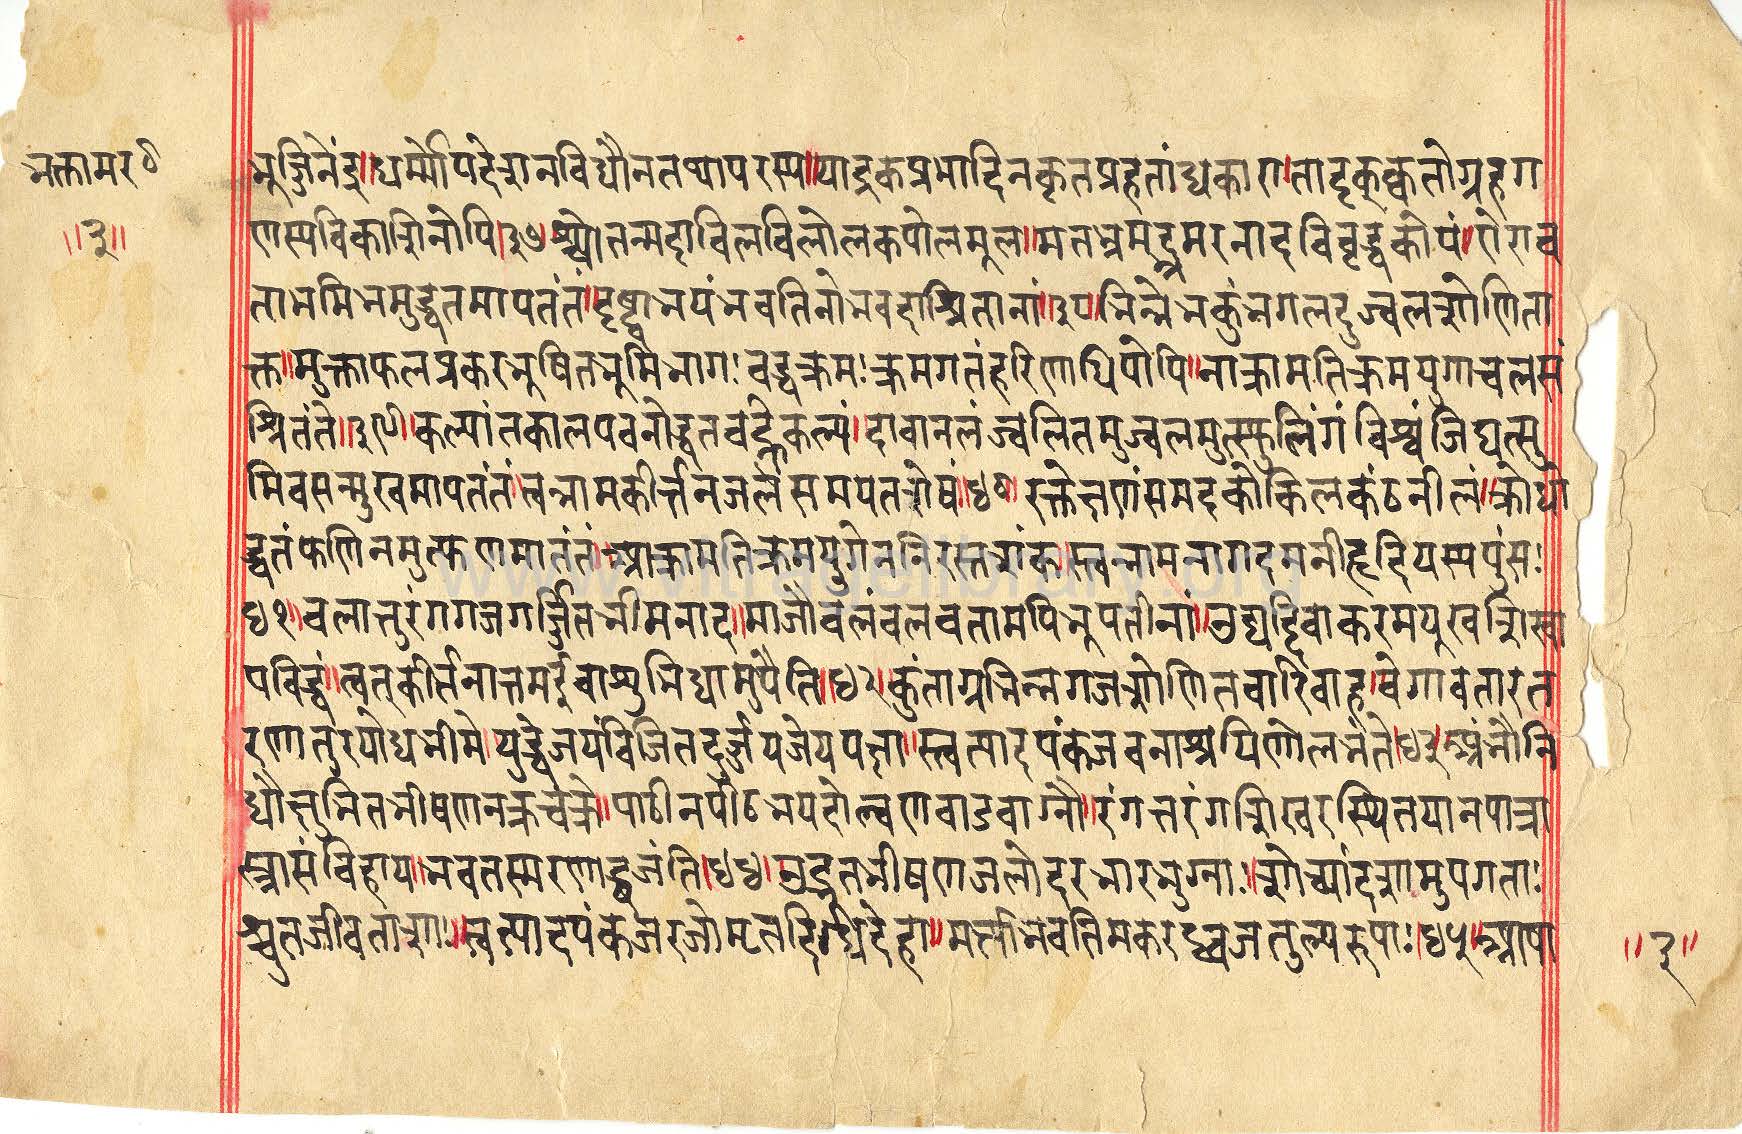 भक्तामर०
॥३॥
भूज्जिनेंद्र।धर्मोपदेशनविधौनतथापरस्य॥यादृक्प्रभादिनकृतप्रहतांधकारा।तादृक्कुतोग्रहग
णस्यविकाशिनोपि।३७।श्च्योतन्मदाविलविलोलकपोलमूल॥मत्तभ्रमद्भ्रमरनादविवृद्धकोपं॥ऐराव
ताभमिभमुद्धतमापतंतं॥दृष्ट्वाभयंभवतिनोभवदाश्रितानां॥३८॥भिन्नेभकुंभगलदुज्वलशोणिता
क्त॥मुक्ताफलप्रकरभूषितभूमिभागः।बद्धक्रमःक्रमगतंहरिणाधिपोपि॥नाक्रामतिक्रमयुगाचलसं
श्रितंते॥३९॥कल्पांतकालपवनोद्धतवह्निकल्पं।दावानलंज्वलितमुज्वलमुत्स्फुलिंगं।विश्वंजिघत्सु
मिवसन्मुखमापतंतं।त्वन्नामकीर्त्तनजलंसमयतशेषं॥४०॥रक्तेक्षणंसमदकोकिलकंठनीलं॥क्रोधो
द्धतंफणिनमुत्फणमातंतं॥आक्रामतिक्रमयुगेननिरस्तशंका।स्त्वन्नामनागदमनीहृदियस्यपुंसः
४१।वलात्तुरंगगजगर्ज्जितभीमनाद॥माजौबलंबलवतामपिभूपतीनां॥उद्यद्दिवाकरमयूखशिखा
पविद्धं।त्वत्कीर्तनात्तमइवाशुभिधामुपैति॥४२।कुंताग्रभिन्नगजशोणितवारिवाह।वेगावतारत
रणातुरयोधभीमे।युद्धेजयंविजितदुर्ज्जयजेयपक्षा॥स्त्वत्पादपंकजवनाश्रयिणोलभंते।४३॥अंभोनि
धौक्षुभितभीषणनक्रचक्रे॥पाठीनपीठभयदोल्वणवाडवाग्नौ॥रंगत्तरंगशिखरस्थितयानपात्रा
स्त्रासंविहाय॥भवतस्मरणाद्व्रजंति॥४४॥उद्भूतभीषणजलोदरभारभुग्नाः।शोच्यांदशामुपगताः
श्च्युतजीवताशाः॥त्वत्पादपंकजरजोमृतदिग्धदेहा॥मर्त्याभवंतिमकरध्वजतुल्यरूपाः।४५॥आपा
॥३॥